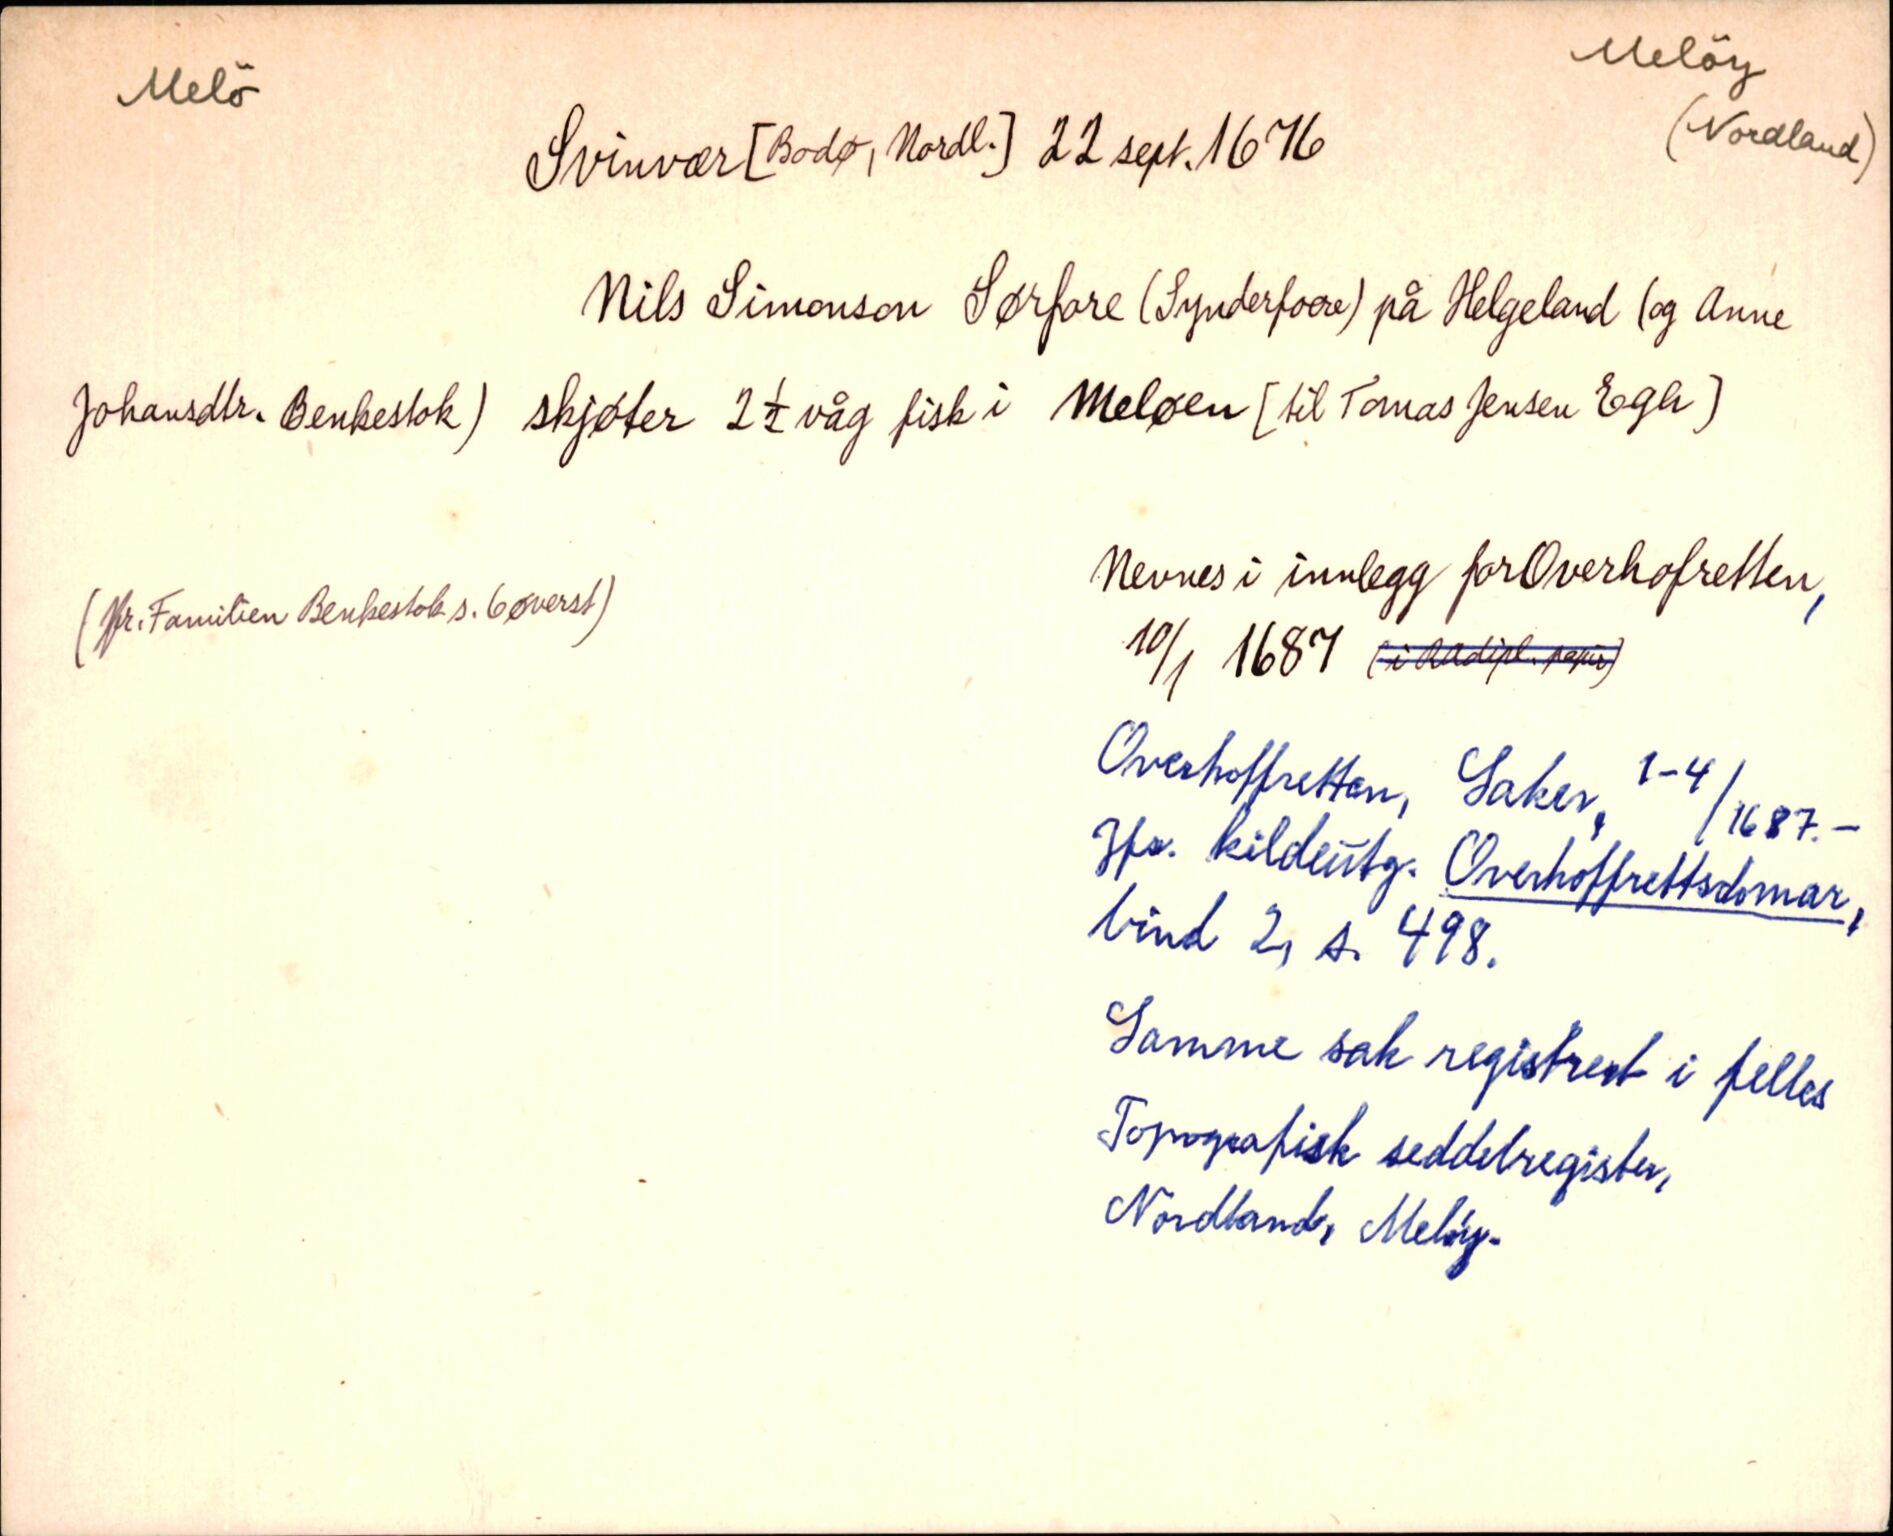 Melö
Melöy
(Nordland)
Svinvær [Bodø, Nordl.] 22 sept. 1676
Nils Simonson Sørfore (Synderfoere) på Helgeland (og Anne
Johansdtr. Benkestok) skjøter 2½ våg fisk i Meløen [til Tomas Jensen Egh]
(jfr. Familien Benkestok s. 6 øverst)
Nevnes i innlegg for Overhofretten,
10/1 1687 (i RA dipl. papir)
Overhoffretten, Saker, 1-4/1687.-
Jfr. kildeutg. Overhoffrettsdomar,
bind 2, s. 498.
Samme sak registrert i felles
Topografisk seddelregister,
Nordland, Meløy.